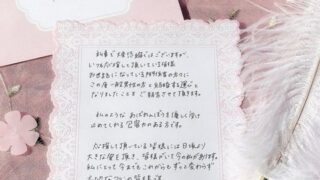 私事で大変恐縮ではございますが、
いつも応援して頂いている皆様
お世話になっている関係者の方々に
この度 一般男性の方と結婚する運びと
なりましたことを ご報告させて頂きます。
私のような おてんばんぼうを優しく受け
止めてくれる 包容力のある方です。
応援して頂いている皆様には 日頃より
大きな愛を頂き、皆様がいて今の私があります。
私にとって 今までもこれからも ずっと変わらず